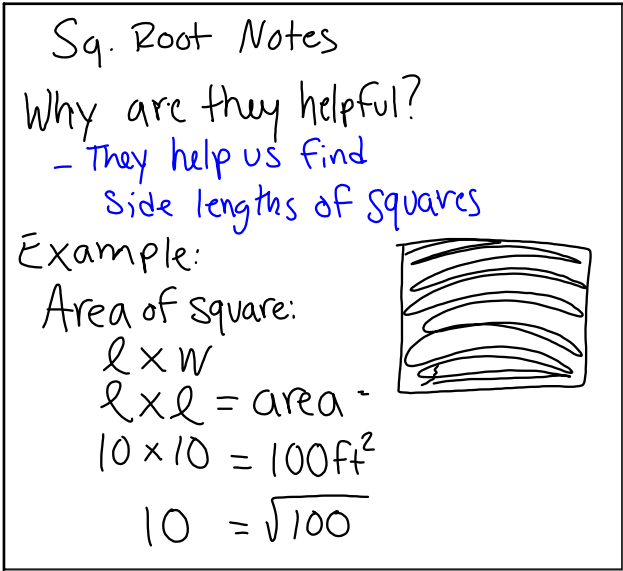 Sq. Root Notes
Why are they helpful?
- They help us find
side lengths of squares
Example:
Area of square:
l x w
l x l = area -
10 x 10 = 100ft²
10 = √100